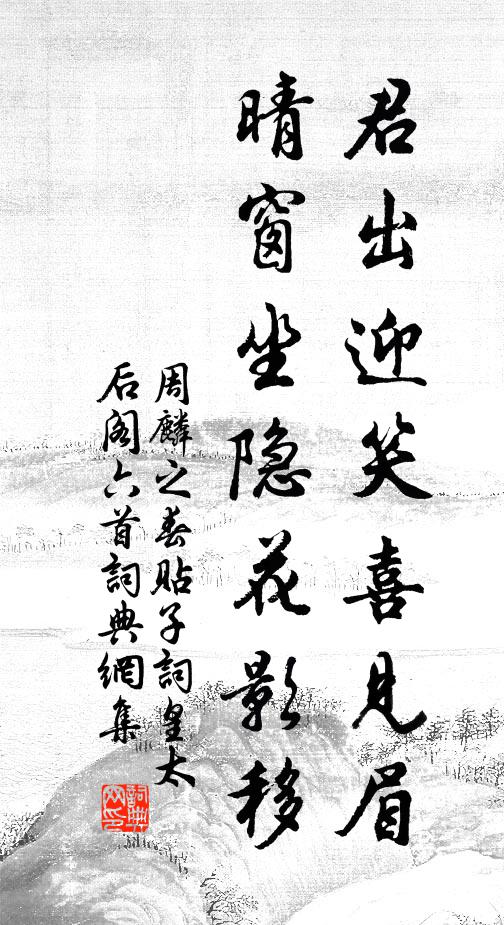 君出迎笑喜見眉
晴窗坐隐花影移
周麟之春貼子詞皇太
后阁六首詞典網集